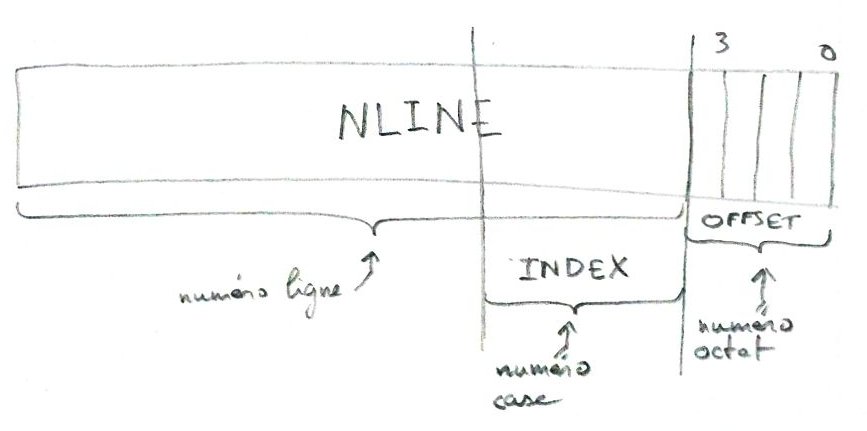 3 0
NLINE
OFFSET
numéro ligne
INDEX
numéro
octet
numéro
case